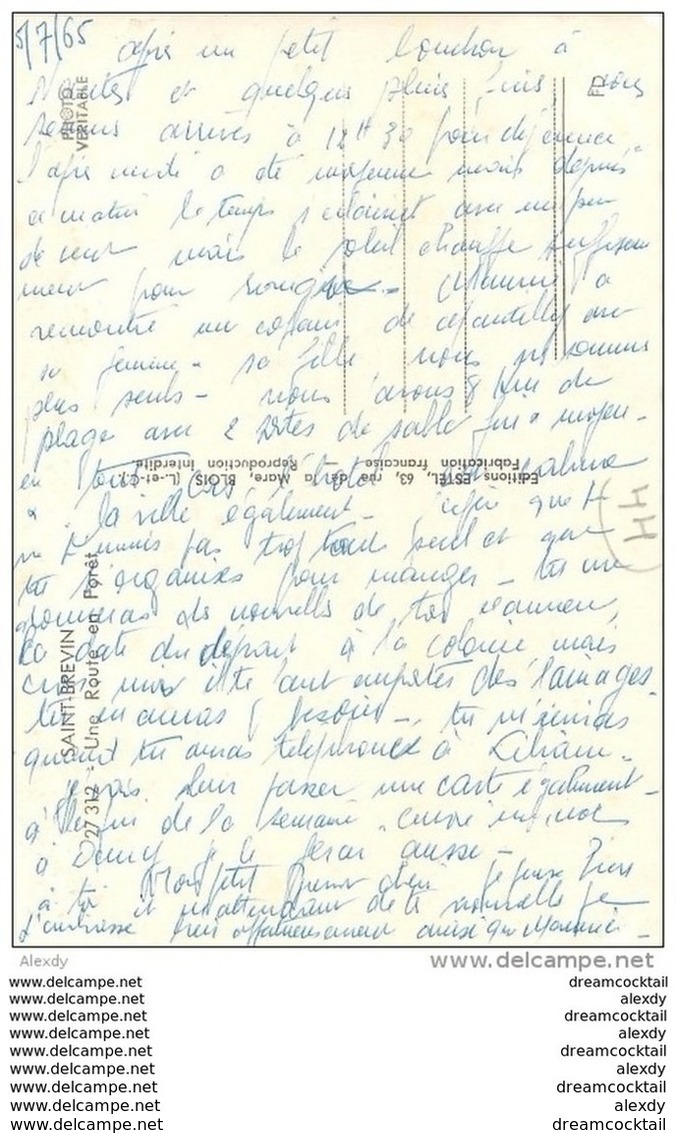 5/7/65
Après un petit bouchon à
Nantes et quelques pluies fines, nous
sommes arrivés à 12H30 pour déjeuner
l'après midi a été moyenne mais depuis
ce matin le temps s'éclaircit avec un peu
de vent mais le soleil chauffe suffisam
ment pour - a
rencontré un copain de avec
sa femme - sa fille nous ne sommes
plus seuls - nous avons 8 Km de
plage avec 2 de sable fin moyen -
en tout cas l'hôtel calme
la ville également - que
ne t'ennuis pas trop tout seul et que
tu t'organises pour manger - tu me
donneras des nouvelles de ton examen,
la date du départ à la colonie mais
il te faut emporter des lainages
tu en auras besoin -, tu m'écriras
quand tu auras téléphoné à Liliane -
je vais leur passer une carte également -
à de la semaine,
à je le ferai aussi -
à toi Mon petit Je pense
et en attendant de te nouvelle je
t'embrasse bien affectueusement ainsi que -
PHOTO
VERITABLE
FD
Editions ESTEL, 63, rue de la Mare, BLOIS (L.-et-C.)
Fabrication française - Reproduction Interdite
SAINT-BREVIN
27 312 - Une Route en Forêt
44
Alexdy
www.delcampe.net
www.delcampe.net dreamcocktail
www.delcampe.net alexdy
www.delcampe.net dreamcocktail
www.delcampe.net alexdy
www.delcampe.net dreamcocktail
www.delcampe.net alexdy
www.delcampe.net dreamcocktail
www.delcampe.net alexdy
www.delcampe.net dreamcocktail